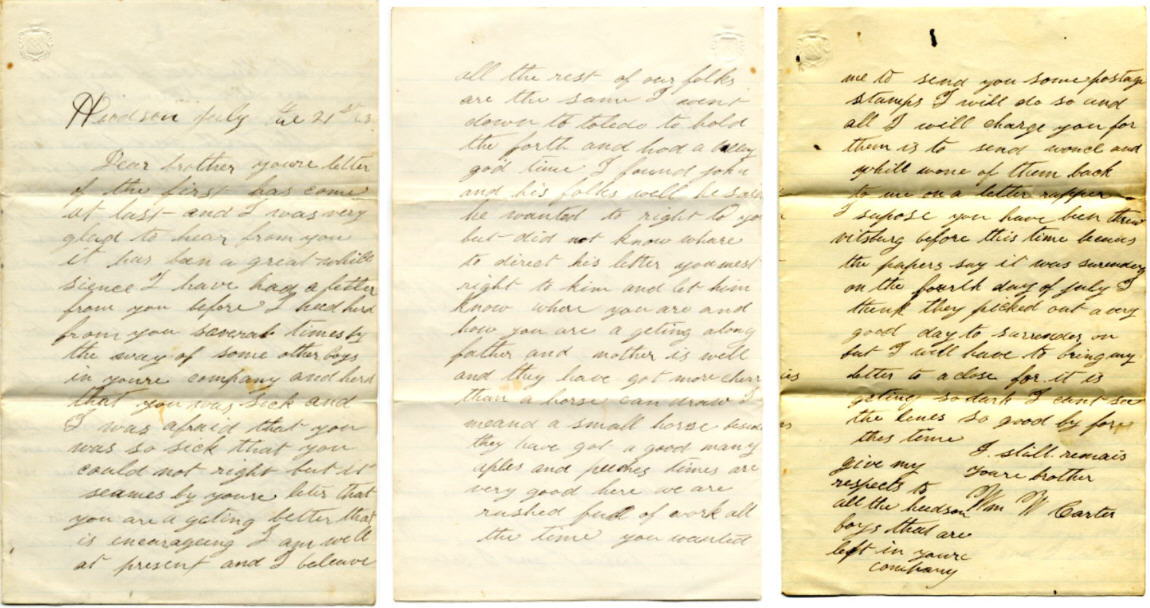 Hudson July the 21st 63
Dear brother youre letter
of the first has come
at last and I was very
glad to hear from you
it has ben a great while
sience I have had a letter
from you before I had herd
from you several times by
the way of some other boys
in youre company and herd
that you was sick and
I was afraid that you
was so sick that you
could not right but it
seames by youre leter that
you are a geting better that
is encarageing I am well
at present and I beleave
all the rest of our folks
are the same I went
down to toledo to hold
the forth and had a very
god time I found john
and his folks well he said
he wanted to right to you
but did not know whare
to direct his letter you mest
right to him and let him
know whare you are and
how you are a geting along
father and mother is well
and they have got more cherr
than a horse can draw I
meand a small horse beside
they have got a good many
aples and peeches times are
very good here we are
rushed full of work all
the time you wanted
me to send you some postage
stamps I will do so and
all I will charge you for
them is to send wonce and
while wone of them back
to me on a letter rapper
I supose you have ben threw
vitsburg before this time
the papers say it was surendey
on the fourth day of july I
think they picked out a very
good day to surrender on
but I will have to bring my
letter to a close for it is
geting so dark I cant see
the lines so good by for
this time
I still remais
youre brother
Wm W Carter
give my
respects to
all the hudson
boys that are
left in youre
company